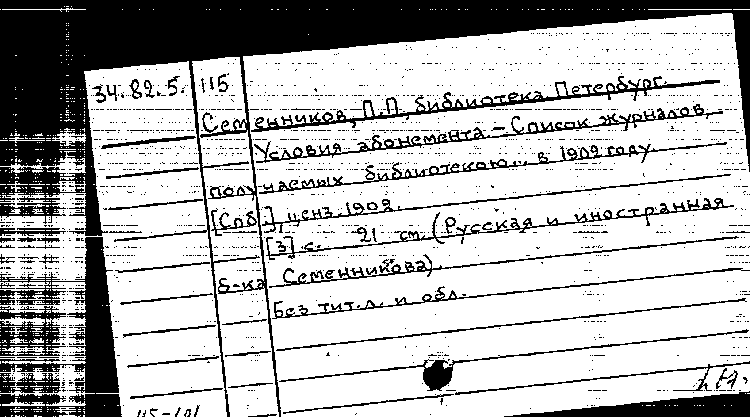 34.82.5. 115
Семенников, П.П., библиотека Петербург.
Условия абонемента – Список журналов,
получаемых библиотекою... в 1902 году.
[Спб.], ценз. 1902.
[3] с. 21 см. (Русская и иностранная
б-ка Семенникова).
Без тит. л. и обл.